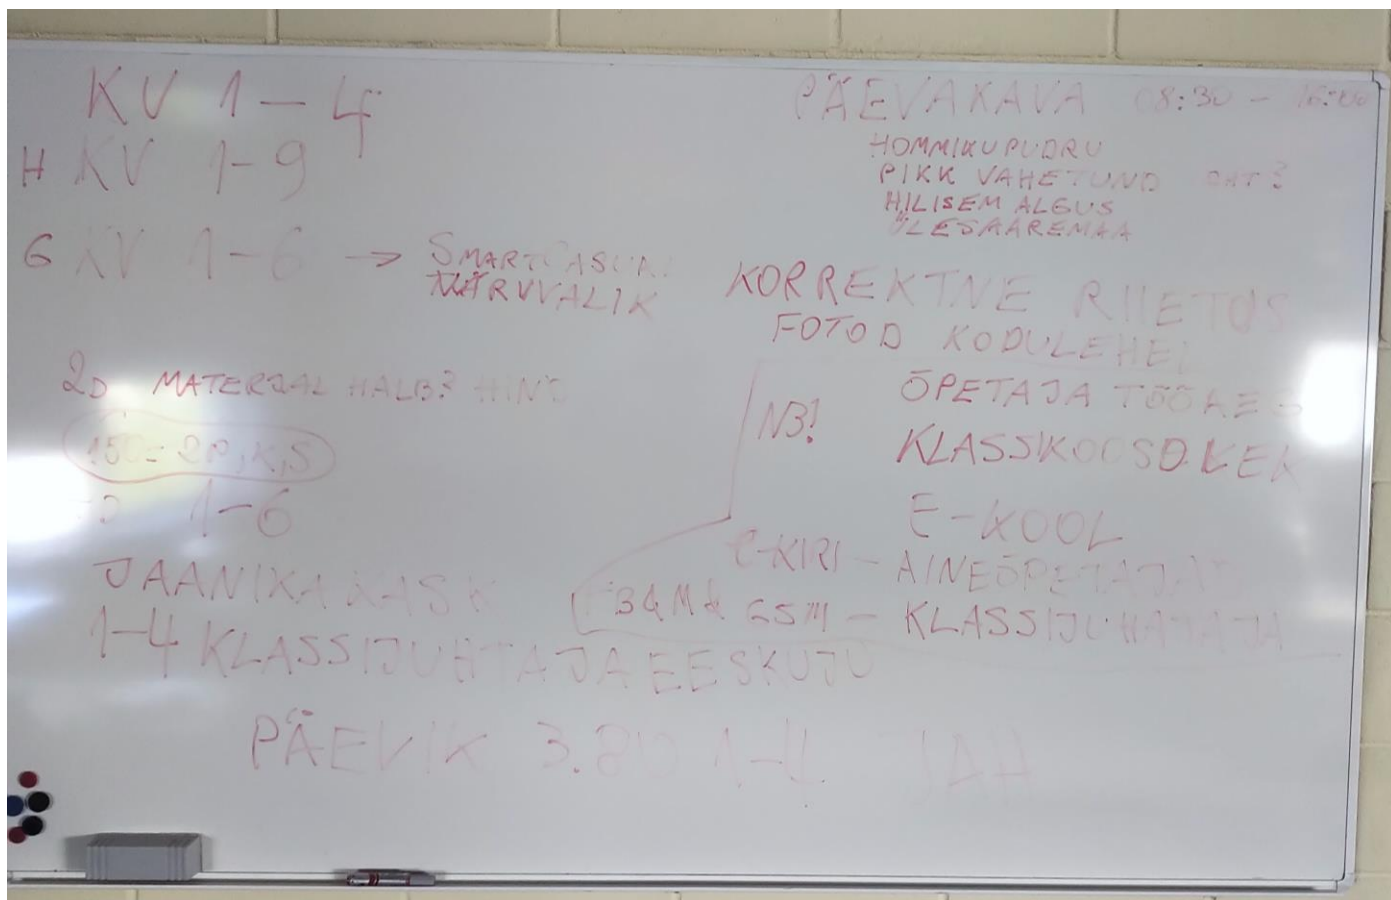 KV 1-4
H KV 1-9
G KV 1-6 → SMART CASUAL
VÄRVVALIK
2D MATERJAL HALB? HIND
1-6
JAANIKA KASK
1-4 KLASSIJUHTAJA EESKUJU
PÄEVIK 3.80 1-4 JAH
PÄEVAKAVA 08:30 - 16:00
HOMMIKUPUDRU
PIKK VAHETUND
HILISEM ALGUS
ÜLESAAREMAA
KORREKTNE RIIETUS
FOTOD KODULEHEL
NB!
ÕPETAJA
KLASSKOOSOLEK
E-KOOL
e-KIRI - AINEÕPETAJAD
GSM - KLASSIJUHATAJA